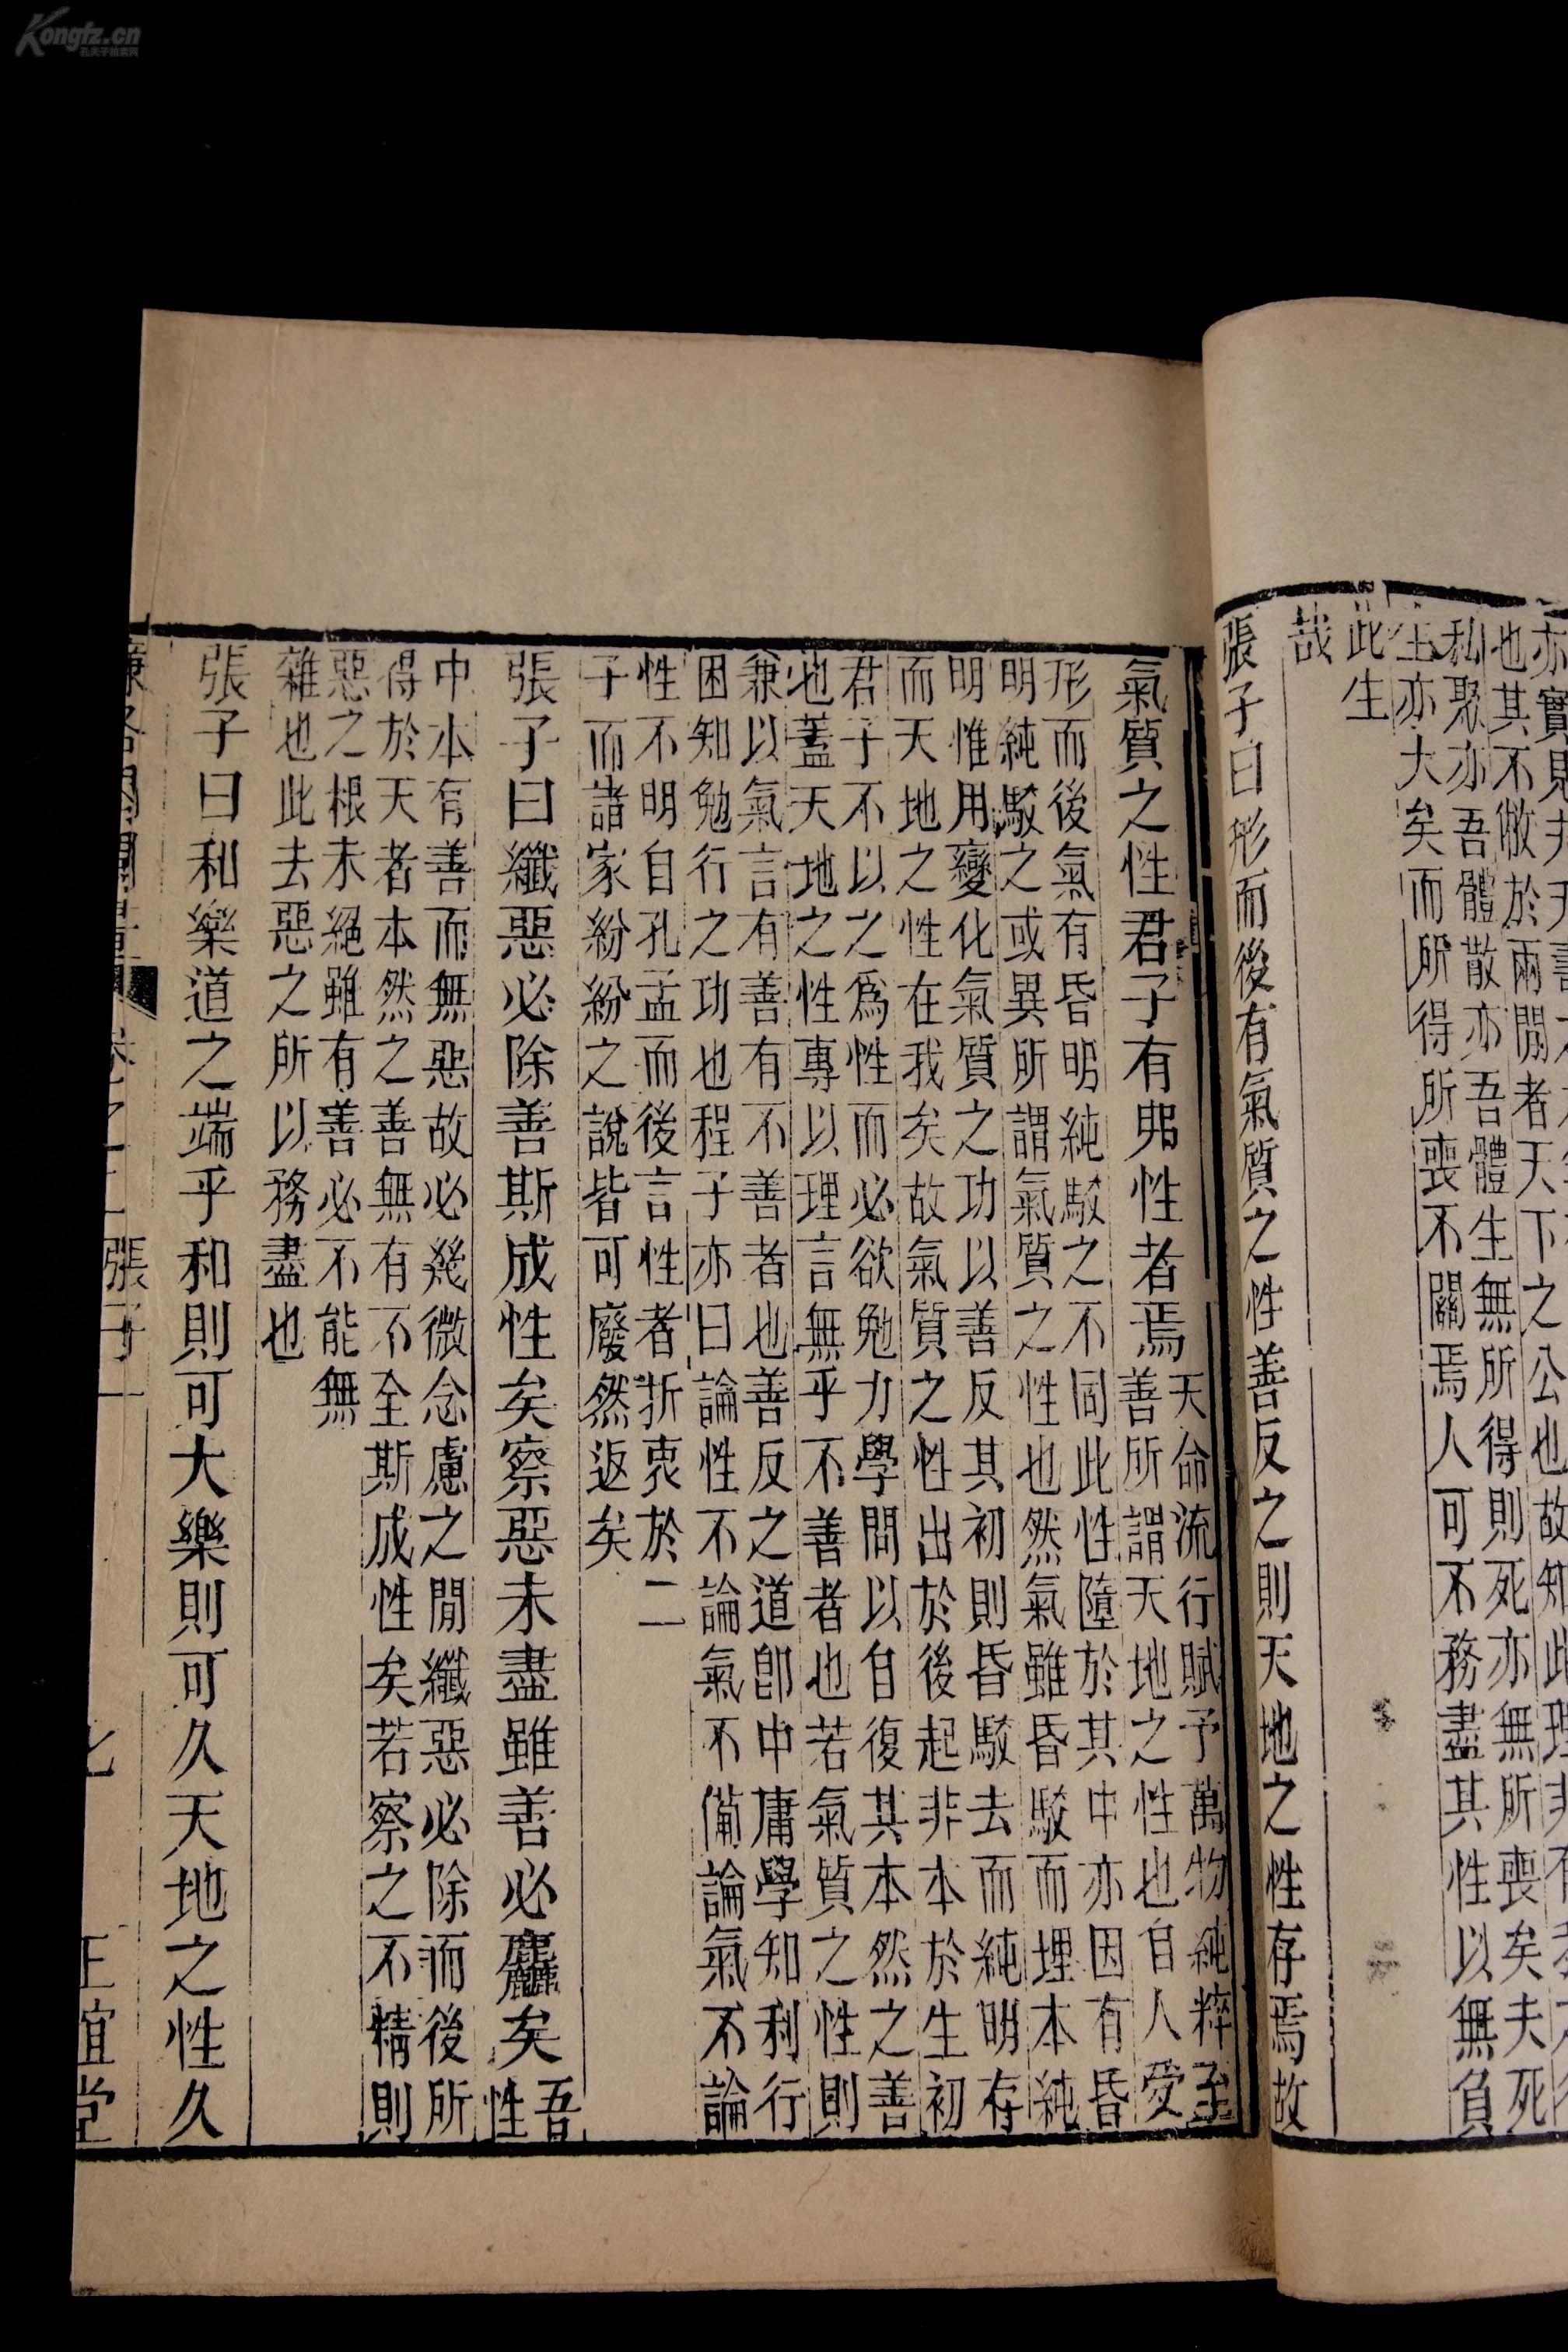 也其不敝於兩閒者天下之公也故知此理非有
私聚亦吾體散亦吾體生無所得則死亦無所喪矣夫死
生亦大矣而所得所喪不關焉人可不務盡其性以無負
此生
哉
張子曰形而後有氣質之性善反之則天地之性存焉故
氣質之性君子有弗性者焉
天命流行賦予萬物純粹至
善所謂天地之性也自人受
形而後氣有昏明純駁之不同此性墮於其中亦因有昏
明純駁之或異所謂氣質之性也然氣雖昏駁而理本純
明惟用變化氣質之功以善反其初則昏駁去而純明存
而天地之性在我矣故氣質之性出於後起非本於生初
君子不以之爲性而必欲勉力學問以自復其本然之善
也蓋天地之性專以理言無乎不善者也若氣質之性則
兼以氣言有善有不善者也善反之道卽中庸學知利行
困知勉行之功也程子亦曰論性不論氣不備論氣不論
性不明自孔孟而後言性者折衷於二
子而諸家紛紛之說皆可廢然返矣
張子曰纖惡必除善斯成性矣察惡未盡雖善必麤矣
吾
性
中本有善而無惡故必幾微念慮之閒纖惡必除而後所
得於天者本然之善無有不全斯成性矣若察之不精則
惡之根未絕雖有善必不能無
雜也此去惡之所以務盡也
張子曰和樂道之端乎和則可大樂則可久天地之性久
張子一 七 正誼堂
Kongfz.cn
孔夫子拍卖网